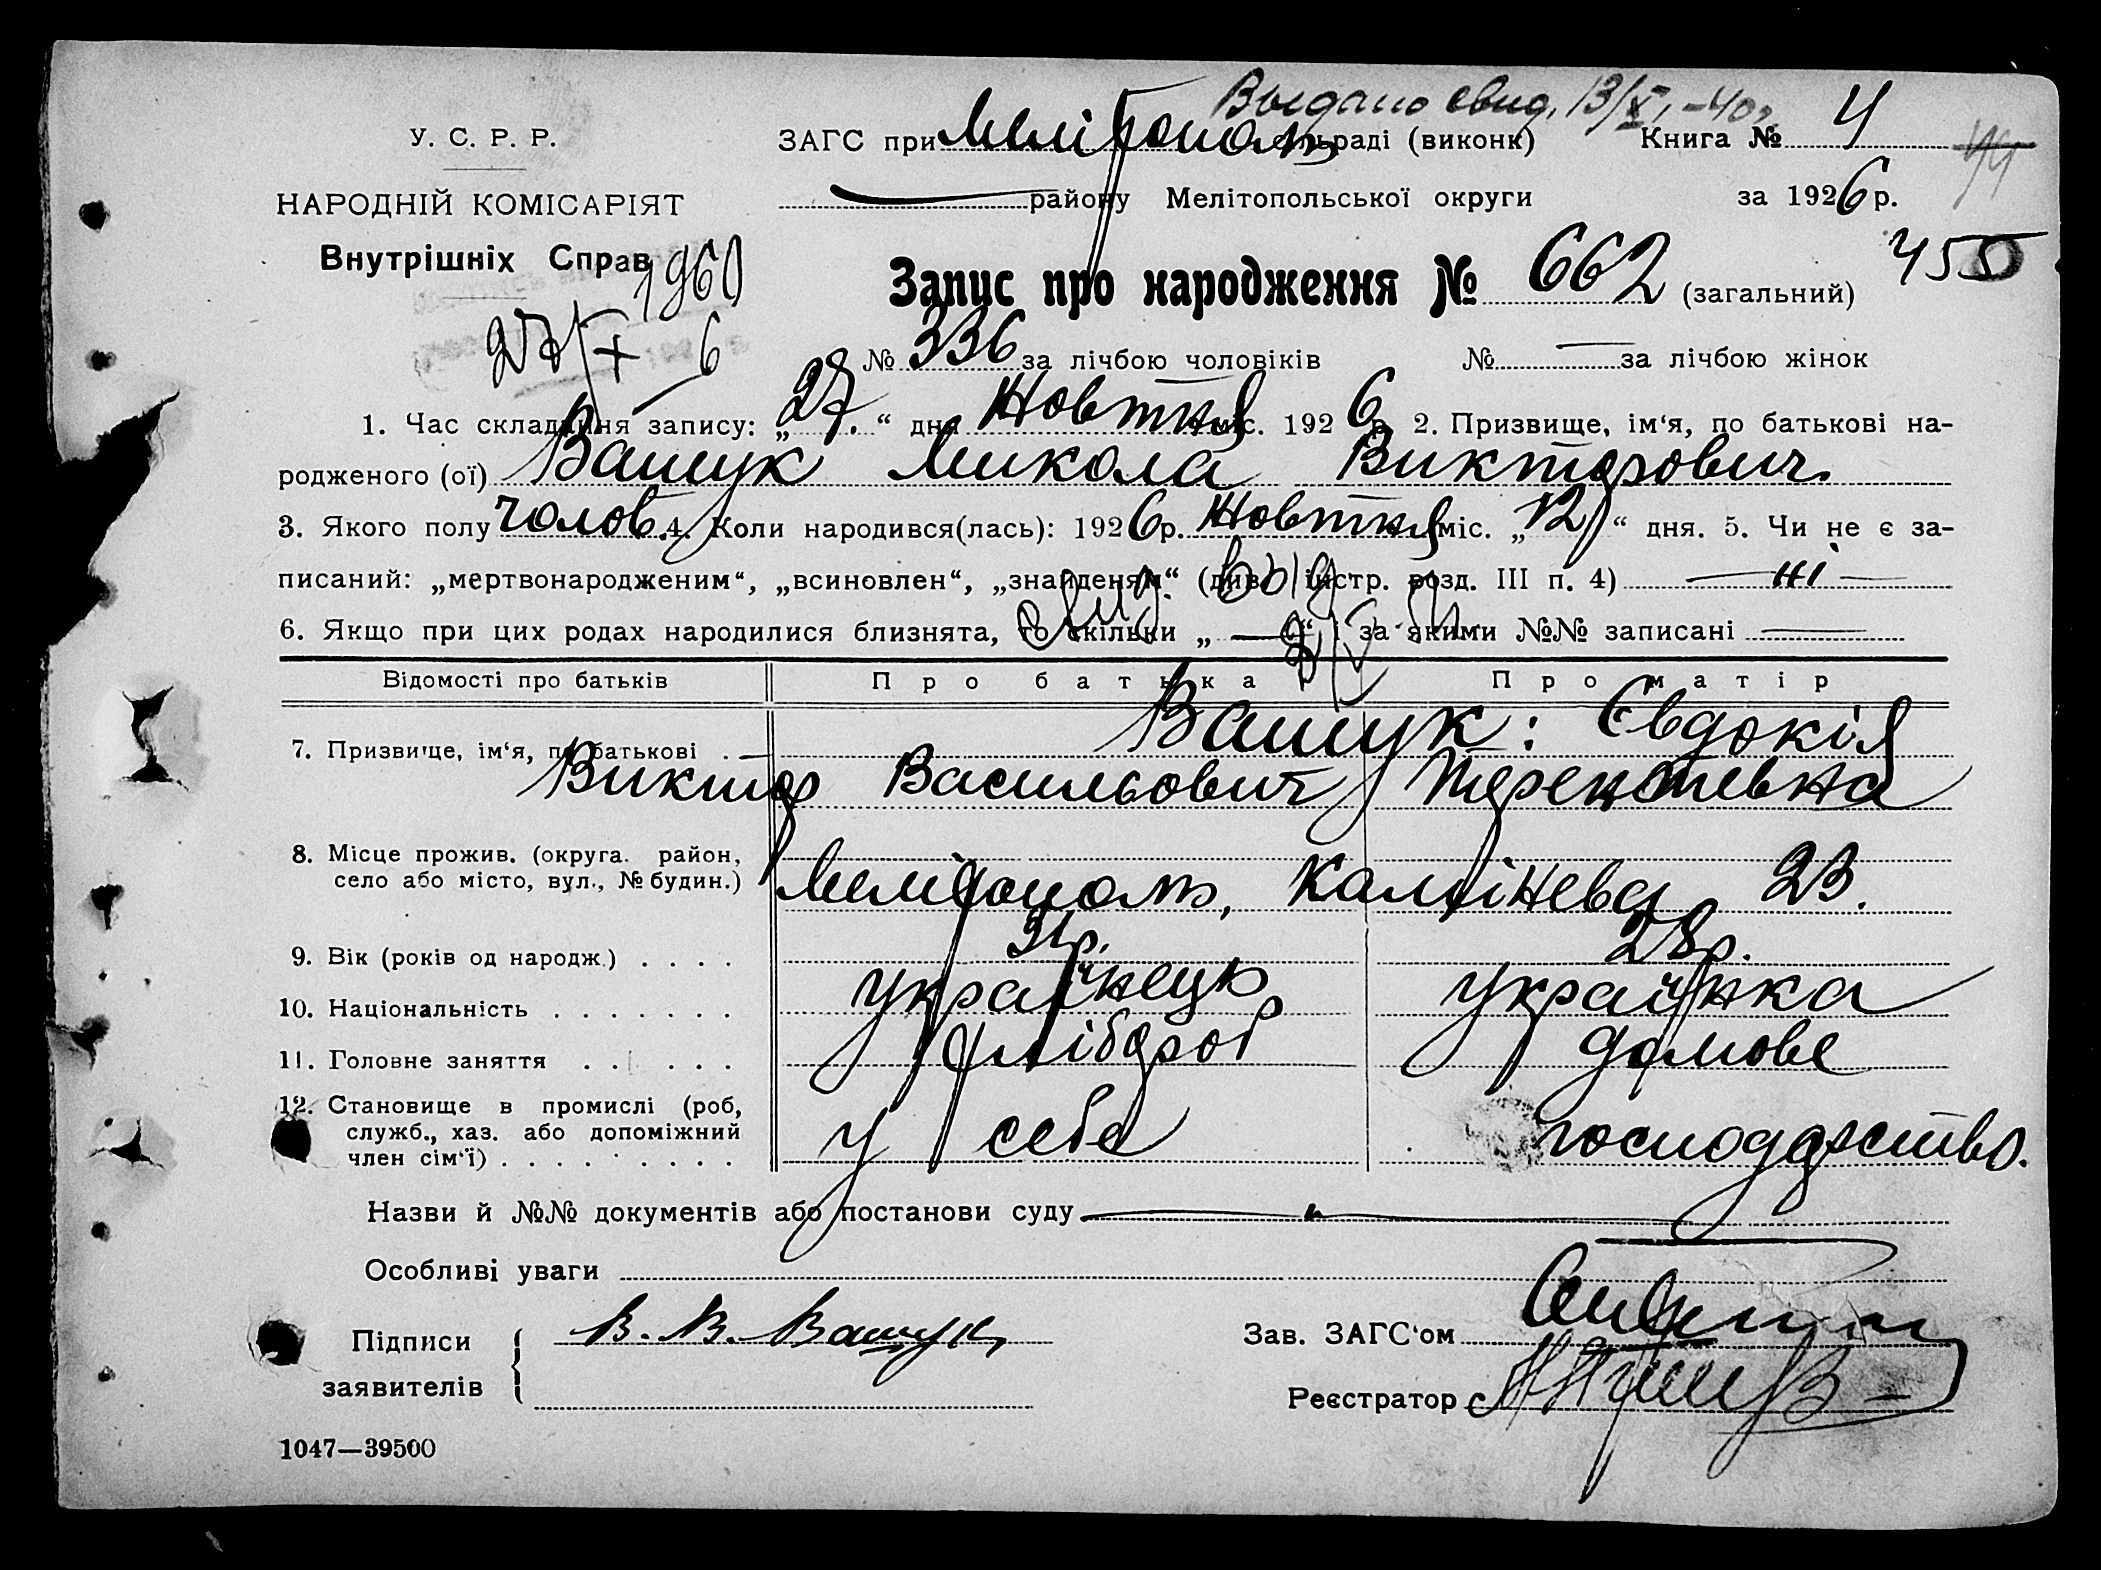 Выдано свид. 13/X -40г.
У. С. Р. Р.
ЗАГС при Мелітополь сільраді (виконк) Книга № 4
44
НАРОДНІЙ КОМІСАРІЯТ
району Мелітопольської округи за 1926 р.
Внутрішніх Справ
1960
Запис про народження № 662 (загальний) 455
27/X 6
№ 336 за лічбою чоловіків № — за лічбою жінок
1. Час складання запису: „27.“ дня Жовтня міс. 1926 р. 2. Призвище, ім‘я, по батькові на-
родженого (ої) Ващук Микола Викторович
3. Якого полу чолов. 4. Коли народився(лась): 1926 р. Жовтня міс. „12“ дня. 5. Чи не є за-
писаний: „мертвонародженим“, „всиновлен“, „знайденям“ (див. інстр. розд. III п. 4) — ні —
6. Якщо при цих родах народилися близнята, то скільки „ — “ і за якими №№ записані —
Відомості про батьків Про батька Про матір
Ващук: Євдокія
7. Призвище, ім‘я, по батькові .
Виктор Васильович Терентевна
8. Місце прожив. (округа. район,
село або місто, вул., № будин.)
Мелітополь, Калінева 23.
9. Вік (років од народж.) . . . . 31р. 28р.
10. Національність . . . . . . . українець українка
11. Головне заняття . . . . . хлібороб домове
12. Становище в промислі (роб,
служб., хаз. або допоміжний
член сім‘ї) . . . . . . . . . . у себе господарство.
Назви й №№ документів або постанови суду
Особливі уваги
Підписи В. В. Ващук Зав. ЗАГС‘ом
заявителів Реєстратор
1047—39500